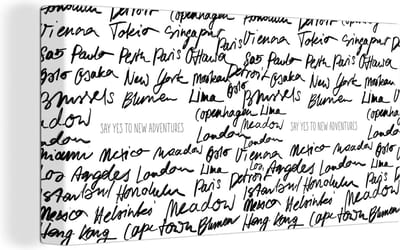 Honolulu Detroit Copenhagen Honolulu Detroit Copenhagen
Vienna Tokio Singapur Paris Vienna Tokio Singapur
São Paulo Perth Paris Ottawa São Paulo Perth Paris Ottawa
Oslo Osaka New York Moskau Detroit Osaka New York Moskau
Brussels Blumen Lima Oslo Brussels Blumen Lima
Meadow Copenhagen Lima Copenhagen
London SAY YES TO NEW ADVENTURES London Meadow SAY YES TO NEW ADVENTURES London
London London
Miami Mexico Meadow Oslo Vienna Mexico Meadow Oslo
Los Angeles London Lima Los Angeles London Lima
Istanbul Honolulu Paris Detroit Istanbul Honolulu Paris
Mexico Helsinki Meadow Mexico Helsinki Meadow
Hong Kong Cape Town Blumen Hong Kong Cape Town Blumen